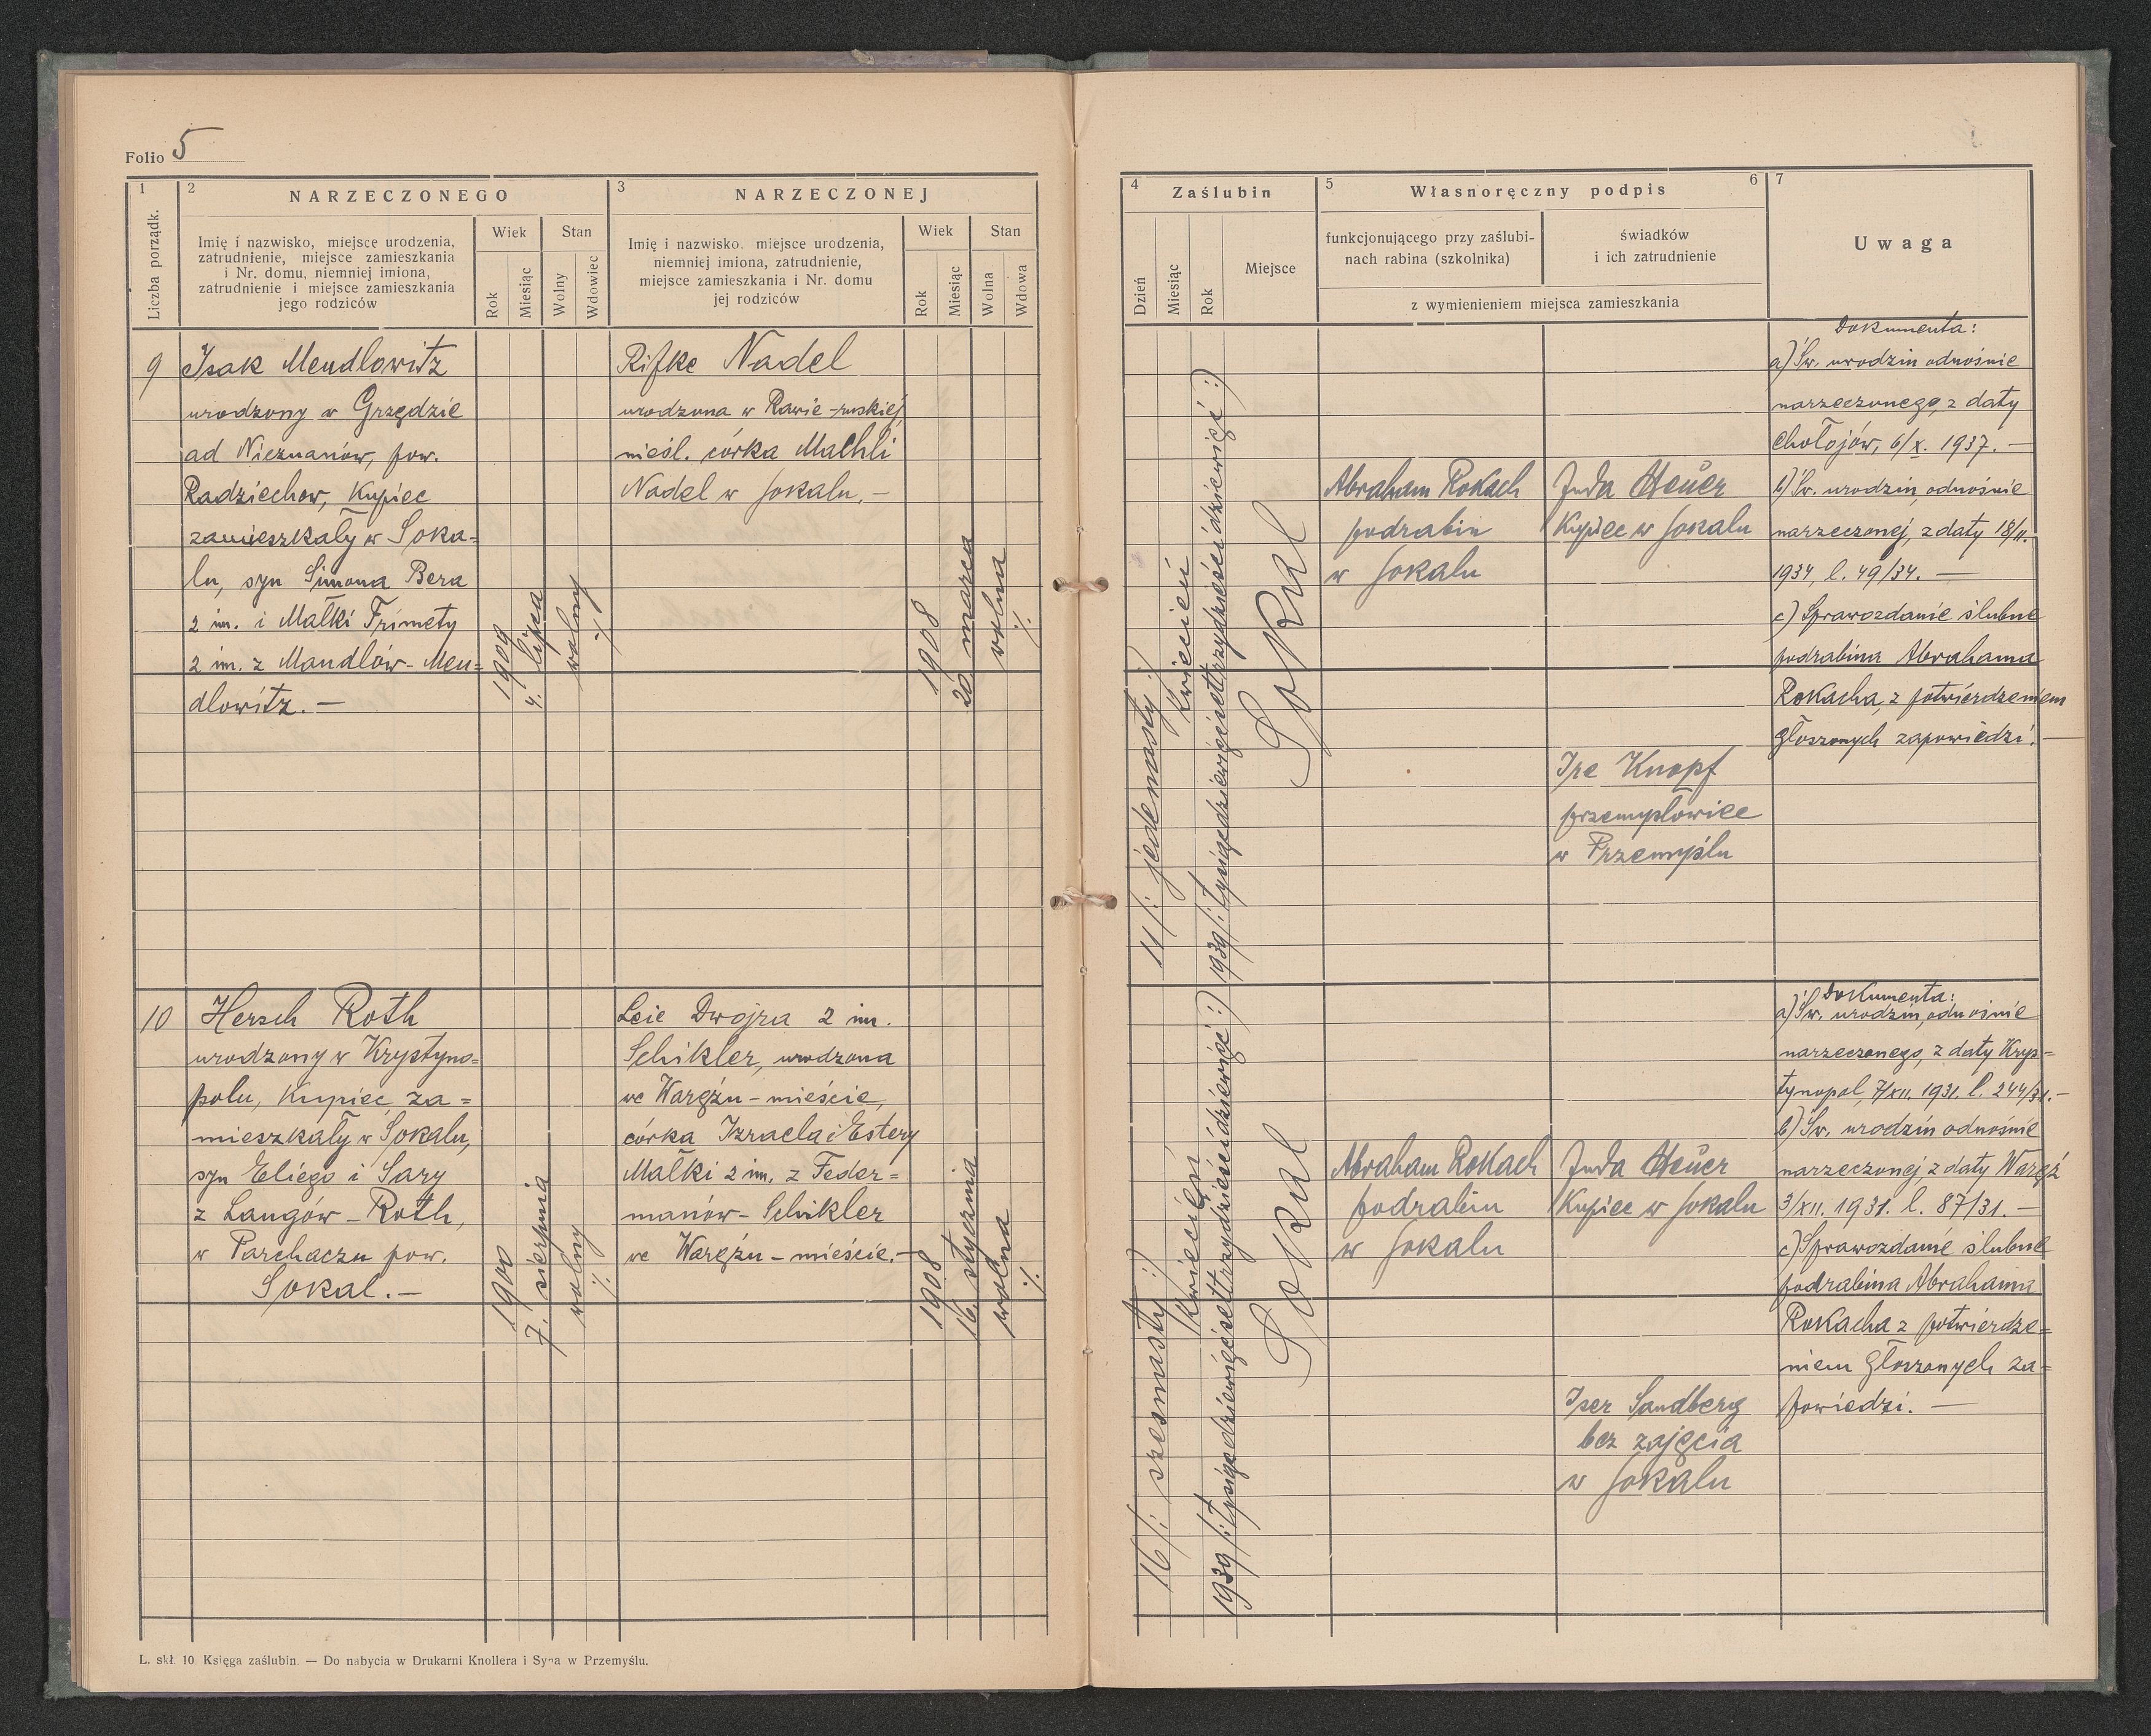 Folio 5
1
2 NARZECZONEGO
3 NARZECZONEJ
Liczba porządk.
Imię i nazwisko, miejsce urodzenia,
zatrudnienie, miejsce zamieszkania
i Nr. domu, niemniej imiona,
zatrudnienie i miejsce zamieszkania
jego rodziców
Wiek
Stan
Rok
Miesiąc
Wolny
Wdowiec
Imię i nazwisko, miejsce urodzenia,
niemniej imiona, zatrudnienie,
miejsce zamieszkania i Nr. domu
jej rodziców
Wiek
Stan
Rok
Miesiąc
Wolna
Wdowa
9
Isak Mendlowitz
urodzony w Grzędzie
ad Nieznanów, pow.
Radziechow, kupiec
zamieszkały w Soka=
lu, syn Simona Bera
2 im. i Małki Frimety
2 im. z Mandlów-Men=
dlowitz.—
1909
4. lipca
wolny
./.
Rifke Nadel
urodzona w Rawie-ruskiej
nieśl. córka Machli
Nadel w Sokalu.—
1908
20 marca
wolna
./.
10
Hersch Roth
urodzony w Krystyno=
polu, kupiec, za=
mieszkały w Sokalu,
syn Eliego i Sary
z Langów-Roth,
w Parchaczu pow.
Sokal.—
1900
7. sierpnia
wolny
./.
Leie Dwojra 2 im.
Schikler, urodzona
we Warężu-mieście,
córka Izraela i Estery
Małki 2 im. z Feder=
manów-Schikler
we Warężu-mieście.—
1908
16. stycznia
wolna
./.
L. skł. 10. Księga zaślubin. — Do nabycia w Drukarni Knollera i Syna w Przemyślu.
4 Zaślubin
5 Własnoręczny podpis 6
7
Uwaga
Dzień
Miesiąc
Rok
Miejsce
funkcjonującego przy zaślubi-
nach rabina (szkolnika)
świadków
i ich zatrudnienie
z wymienieniem miejsca zamieszkania
11 /: jedenasty :/
Kwiecień
1939 /: tysiącdziewięćsettrzydzieścidziewięć :/
Sokal
Abraham Rokach
podrabin
w Sokalu
Juda Heuer
Kupiec w Sokalu
Ire Knopf
przemysłowiec
w Przemyślu
Dokumenta:
a) Św. urodzin odnośnie
narzeczonego, z daty
Chołojów, 6/X. 1937.—
b) Św. urodzin, odnośnie
narzeczonej, z daty 18/II.
1934, l. 49/34.—
c) Sprawozdanie ślubne
podrabina Abrahama
Rokacha, z potwierdzeniem
głoszonych zapowiedzi.—
16 /: szesnasty :/
Kwiecień
1939 /: tysiącdziewięćsettrzydzieścidziewięć :/
Sokal
Abraham Rokach
podrabin
w Sokalu
Juda Heuer
Kupiec w Sokalu
Iser Sandberg
bez zajęcia
w Sokalu
Dokumenta:
a) Św. urodzin, odnośnie
narzeczonego, z daty Krys=
tynopol, 7/XII. 1931. l. 244/31.—
b) Św. urodzin odnośnie
narzeczonej, z daty Waręż
3/XII. 1931. l. 87/31.—
c) Sprawozdanie ślubne
podrabina Abrahama
Rokacha z potwierdze=
niem głoszonych za=
powiedzi.—